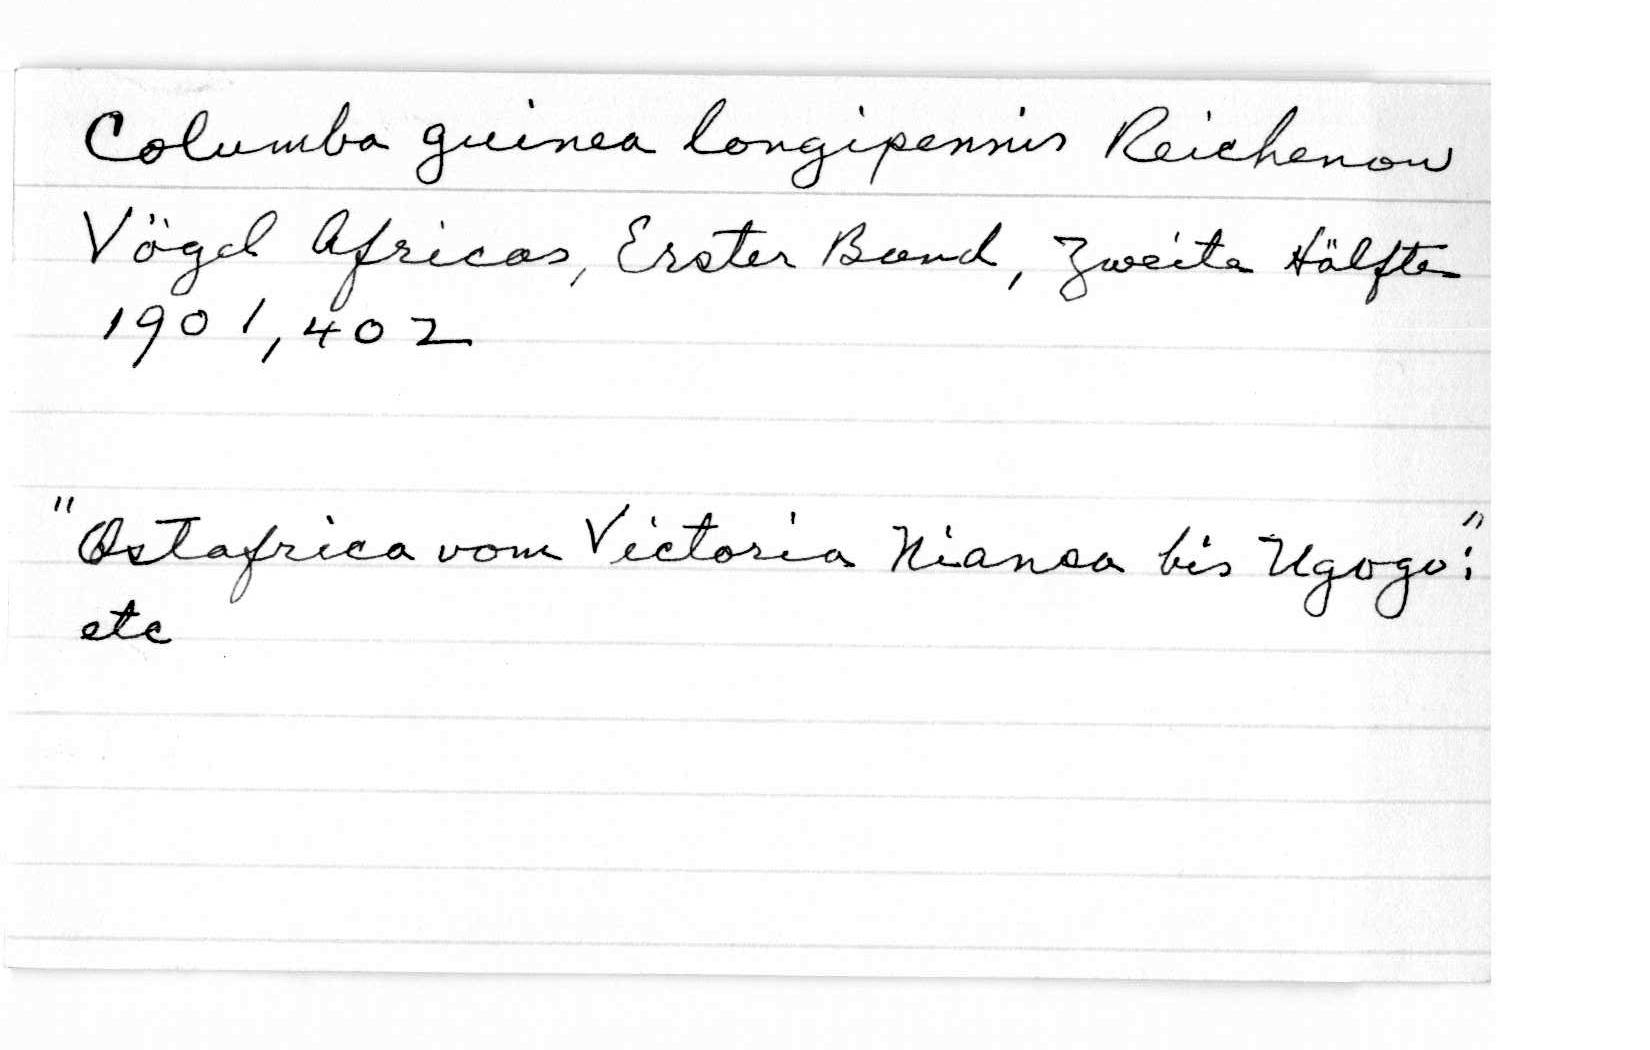 Columba guinea longipennis Reichenow
Vögel Africas, Erster Band, Zweite Hälfte
1901, 402
"Ostafrica vom Victoria Niansa bis Ugogo."
etc